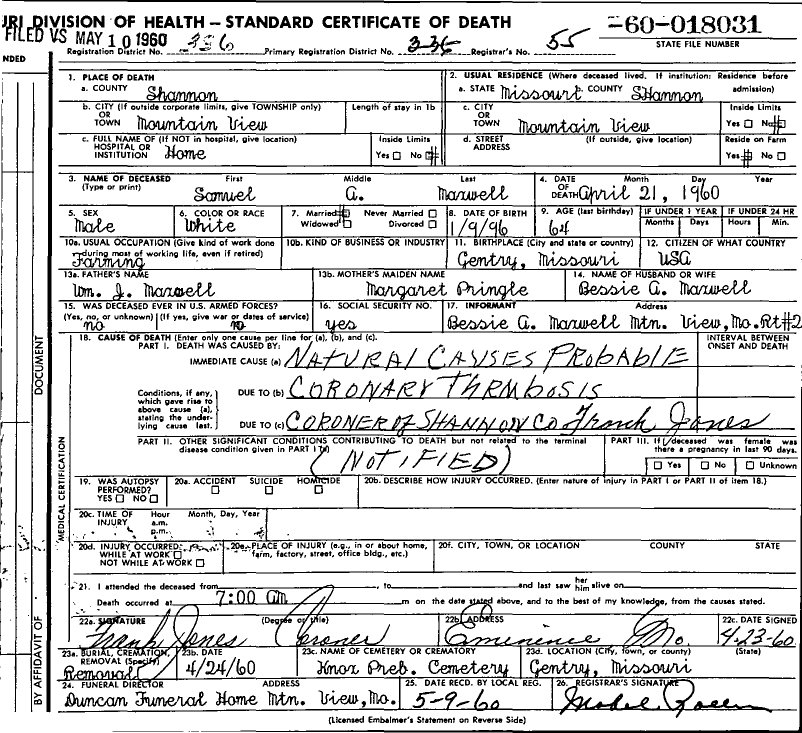 JRI DIVISION OF HEALTH — STANDARD CERTIFICATE OF DEATH
-60-018031
FILED VS MAY 10 1960
Registration District No. 336 Primary Registration District No. 336 Registrar's No. 55 STATE FILE NUMBER
NDED
1. PLACE OF DEATH
a. COUNTY Shannon
2. USUAL RESIDENCE (Where deceased lived. If institution: Residence before admission)
a. STATE Missouri b. COUNTY SHannon
b. CITY (If outside corporate limits, give TOWNSHIP only) OR TOWN Mountain View
Length of stay in 1b
c. CITY OR TOWN Mountain View
Inside Limits Yes No
c. FULL NAME OF (If NOT in hospital, give location) HOSPITAL OR INSTITUTION Home
Inside Limits Yes No
d. STREET ADDRESS (If outside, give location)
Reside on Farm Yes No
3. NAME OF DECEASED (Type or print) First Middle Last
Samuel A. Maxwell
4. DATE OF DEATH Month Day Year
April 21, 1960
5. SEX Male
6. COLOR OR RACE White
7. Married Never Married Widowed Divorced
8. DATE OF BIRTH 1/9/96
9. AGE (last birthday) 64
IF UNDER 1 YEAR Months Days
IF UNDER 24 HR Hours Min.
10a. USUAL OCCUPATION (Give kind of work done during most of working life, even if retired) Farming
10b. KIND OF BUSINESS OR INDUSTRY
11. BIRTHPLACE (City and state or country) Gentry, Missouri
12. CITIZEN OF WHAT COUNTRY USA
13a. FATHER'S NAME Wm. J. Maxwell
13b. MOTHER'S MAIDEN NAME Margaret Pringle
14. NAME OF HUSBAND OR WIFE Bessie A. Maxwell
15. WAS DECEASED EVER IN U.S. ARMED FORCES? (Yes, no, or unknown) (If yes, give war or dates of service) no no
16. SOCIAL SECURITY NO. yes
17. INFORMANT Address
Bessie A. Maxwell Mtn. View, Mo. Rt#2
18. CAUSE OF DEATH (Enter only one cause per line for (a), (b), and (c).
PART I. DEATH WAS CAUSED BY:
INTERVAL BETWEEN ONSET AND DEATH
IMMEDIATE CAUSE (a) NATURAL CAUSES PROBABLE
Conditions, if any, which gave rise to above cause (a), stating the underlying cause last.
DUE TO (b) CORONARY THRMBOSIS
DUE TO (c) CORONER OF SHANNON CO Frank Jones
PART II. OTHER SIGNIFICANT CONDITIONS CONTRIBUTING TO DEATH but not related to the terminal disease condition given in PART I (a)
(NOTIFIED)
PART III. If deceased was female was there a pregnancy in last 90 days.
Yes No Unknown
19. WAS AUTOPSY PERFORMED? YES NO
20a. ACCIDENT SUICIDE HOMICIDE
20b. DESCRIBE HOW INJURY OCCURRED. (Enter nature of injury in PART I or PART II of item 18.)
20c. TIME OF INJURY Hour a.m. p.m. Month, Day, Year
20d. INJURY OCCURRED: WHILE AT WORK NOT WHILE AT WORK
20e. PLACE OF INJURY (e.g., in or about home, farm, factory, street, office bldg., etc.)
20f. CITY, TOWN, OR LOCATION COUNTY STATE
21. I attended the deceased from , to and last saw her him alive on
Death occurred at 7:00 am m on the date stated above, and to the best of my knowledge, from the causes stated.
22a. SIGNATURE (Degree or title) Frank Jones Coroner
22b. ADDRESS Eminence Mo.
22c. DATE SIGNED 4-23-60
23a. BURIAL, CREMATION, REMOVAL (Specify) Removal
23b. DATE 4/24/60
23c. NAME OF CEMETERY OR CREMATORY Knox Preb. Cemetery
23d. LOCATION (City, town, or county) (State) Gentry, Missouri
24. FUNERAL DIRECTOR ADDRESS
Duncan Funeral Home Mtn. View, Mo.
25. DATE RECD. BY LOCAL REG. 5-9-60
26. REGISTRAR'S SIGNATURE Mabel
(Licensed Embalmer's Statement on Reverse Side)
DOCUMENT
MEDICAL CERTIFICATION
BY AFFIDAVIT OF